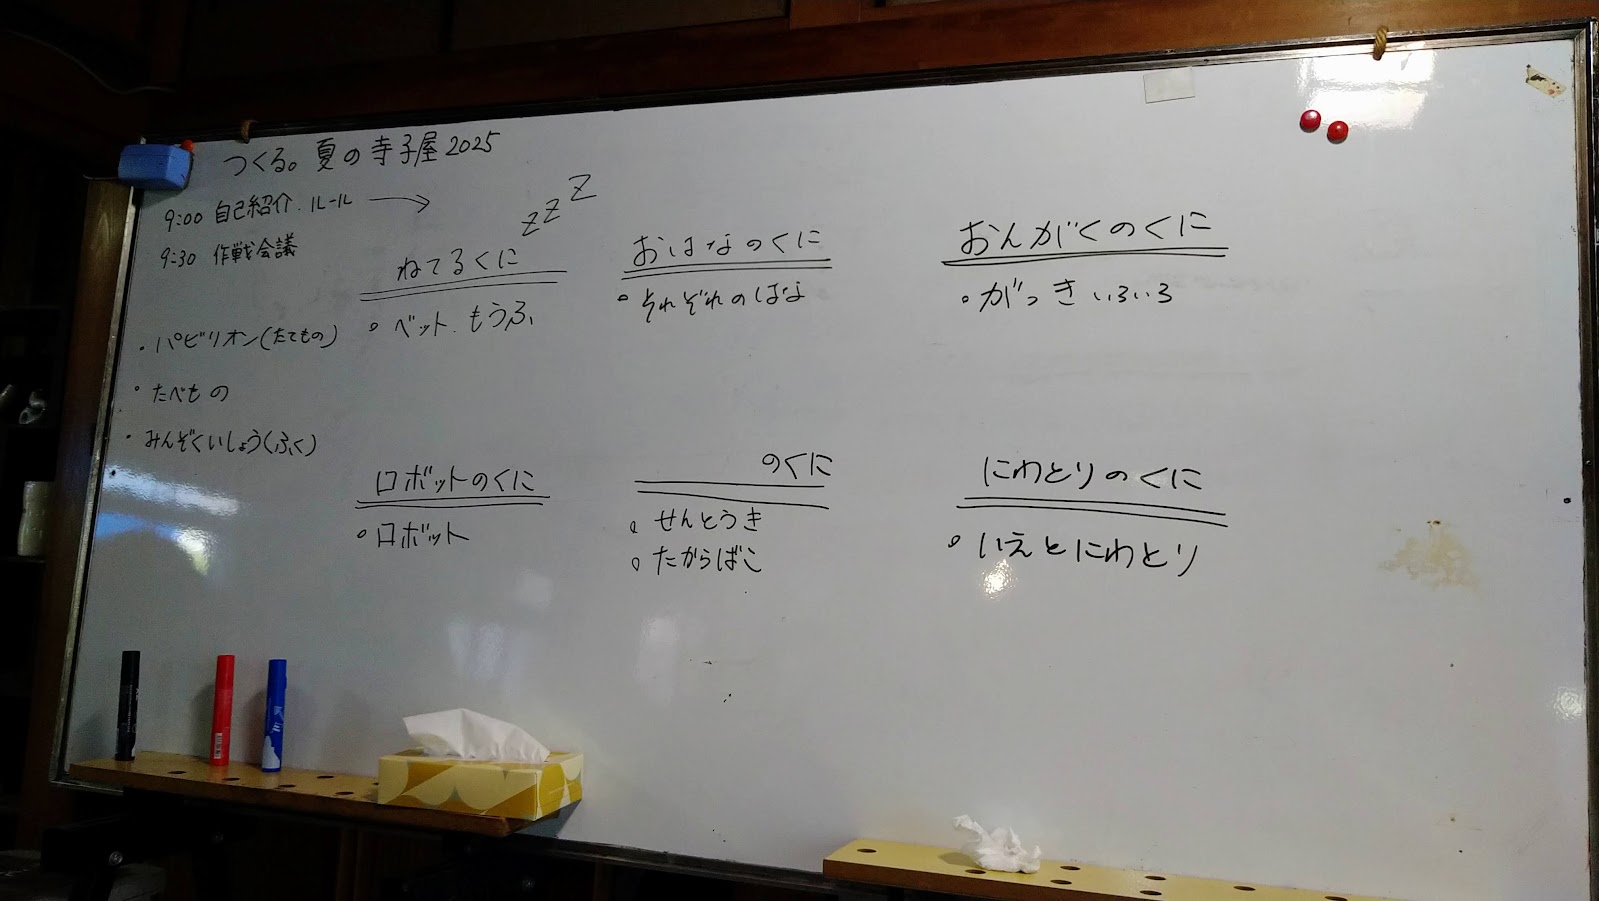 つくる。夏の寺子屋2025
9:00 自己紹介.ルール →
9:30 作戦会議
・パビリオン(たてもの)
・たべもの
・みんぞくいしょう(ふく)
zzZ
ねてるくに
・ベット.もうふ
おはなのくに
・それぞれのはな
おんがくのくに
・がっきいろいろ
ロボットのくに
・ロボット
のくに
・せんとうき
・たからばこ
にわとりのくに
・いえとにわとり